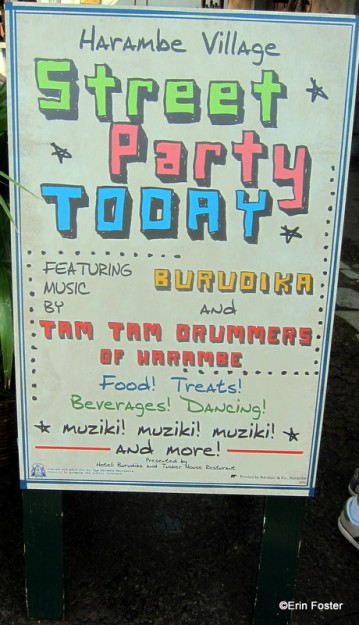 Harambe Village
Street
Party
TODAY
FEATURING
MUSIC
BY
BURUDIKA
AND
TAM TAM DRUMMERS
OF HARAMBE
Food! Treats!
Beverages! Dancing!
muziki! muziki! muziki!
AND more!
Presented by
Hoteli Burudika and Tusker House Restaurant
©Erin Foster